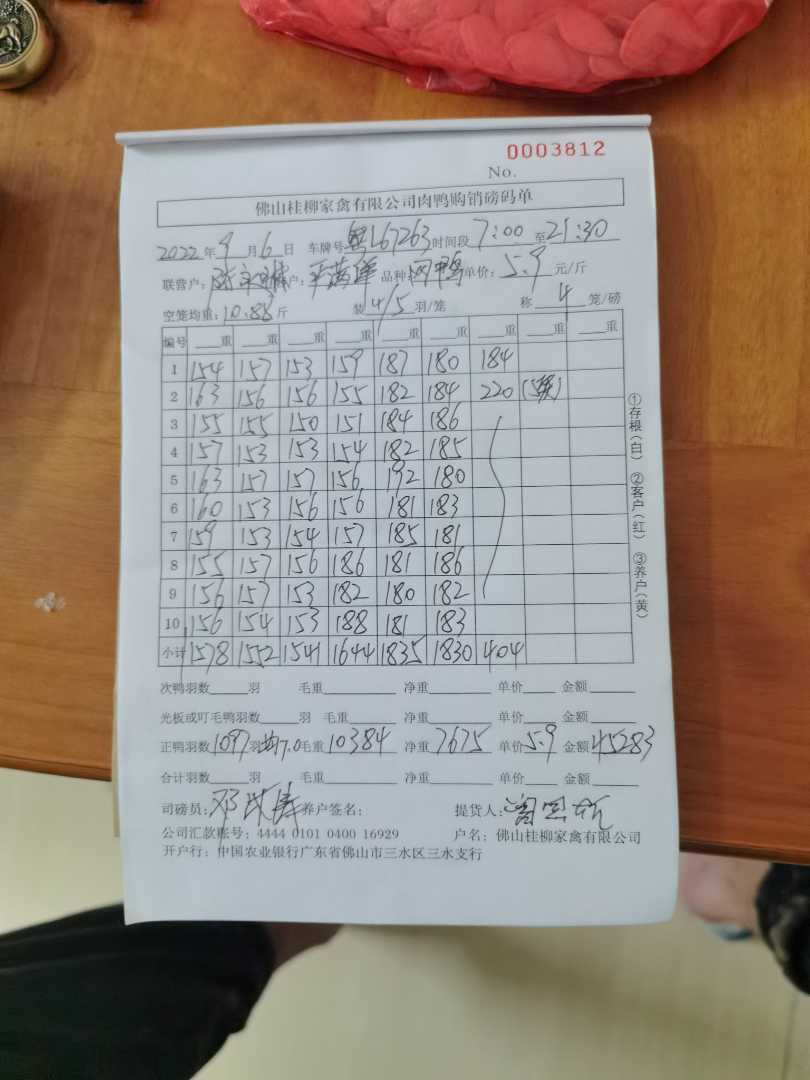 0003812
No.
佛山桂柳家禽有限公司肉鸭购销磅码单
2022年9月6日 车牌号粤L67263时间段7:00至21:30
联营户: 户: 品种:肉鸭单价:5.9元/斤
空笼均重:10.83斤 装4/5羽/笼 称4笼/磅
编号 重 重 重 重 重 重 重 重 重
1 154 157 153 159 187 180 184
2 163 156 156 155 182 184 220
3 155 155 150 151 184 186
4 157 153 153 154 182 185
5 163 157 157 156 192 180
6 160 153 156 156 181 183
7 159 153 154 157 185 181
8 155 157 156 186 181 186
9 156 157 153 182 180 182
10 156 154 153 188 181 183
小计 1578 1552 1541 1644 1835 1830 404
次鸭羽数 羽 毛重 净重 单价 金额
光板或叮毛鸭羽数 羽 毛重 净重 单价 金额
正鸭羽数1097羽均7.0毛重10384 净重7675 单价5.9 金额45283
合计羽数 羽 毛重 净重 单价 金额
司磅员: 养户签名: 提货人:
公司汇款账号: 4444 0101 0400 16929 户名: 佛山桂柳家禽有限公司
开户行: 中国农业银行广东省佛山市三水区三水支行
①存根(白) ②客户(红) ③养户(黄)